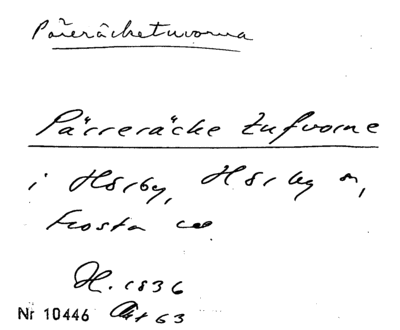 Päreräcketuvorna
Pärreräcke Tufvorne
i Hörby, Hörby sn,
Frosta
H. 1836
Nr 10446 Akt 63